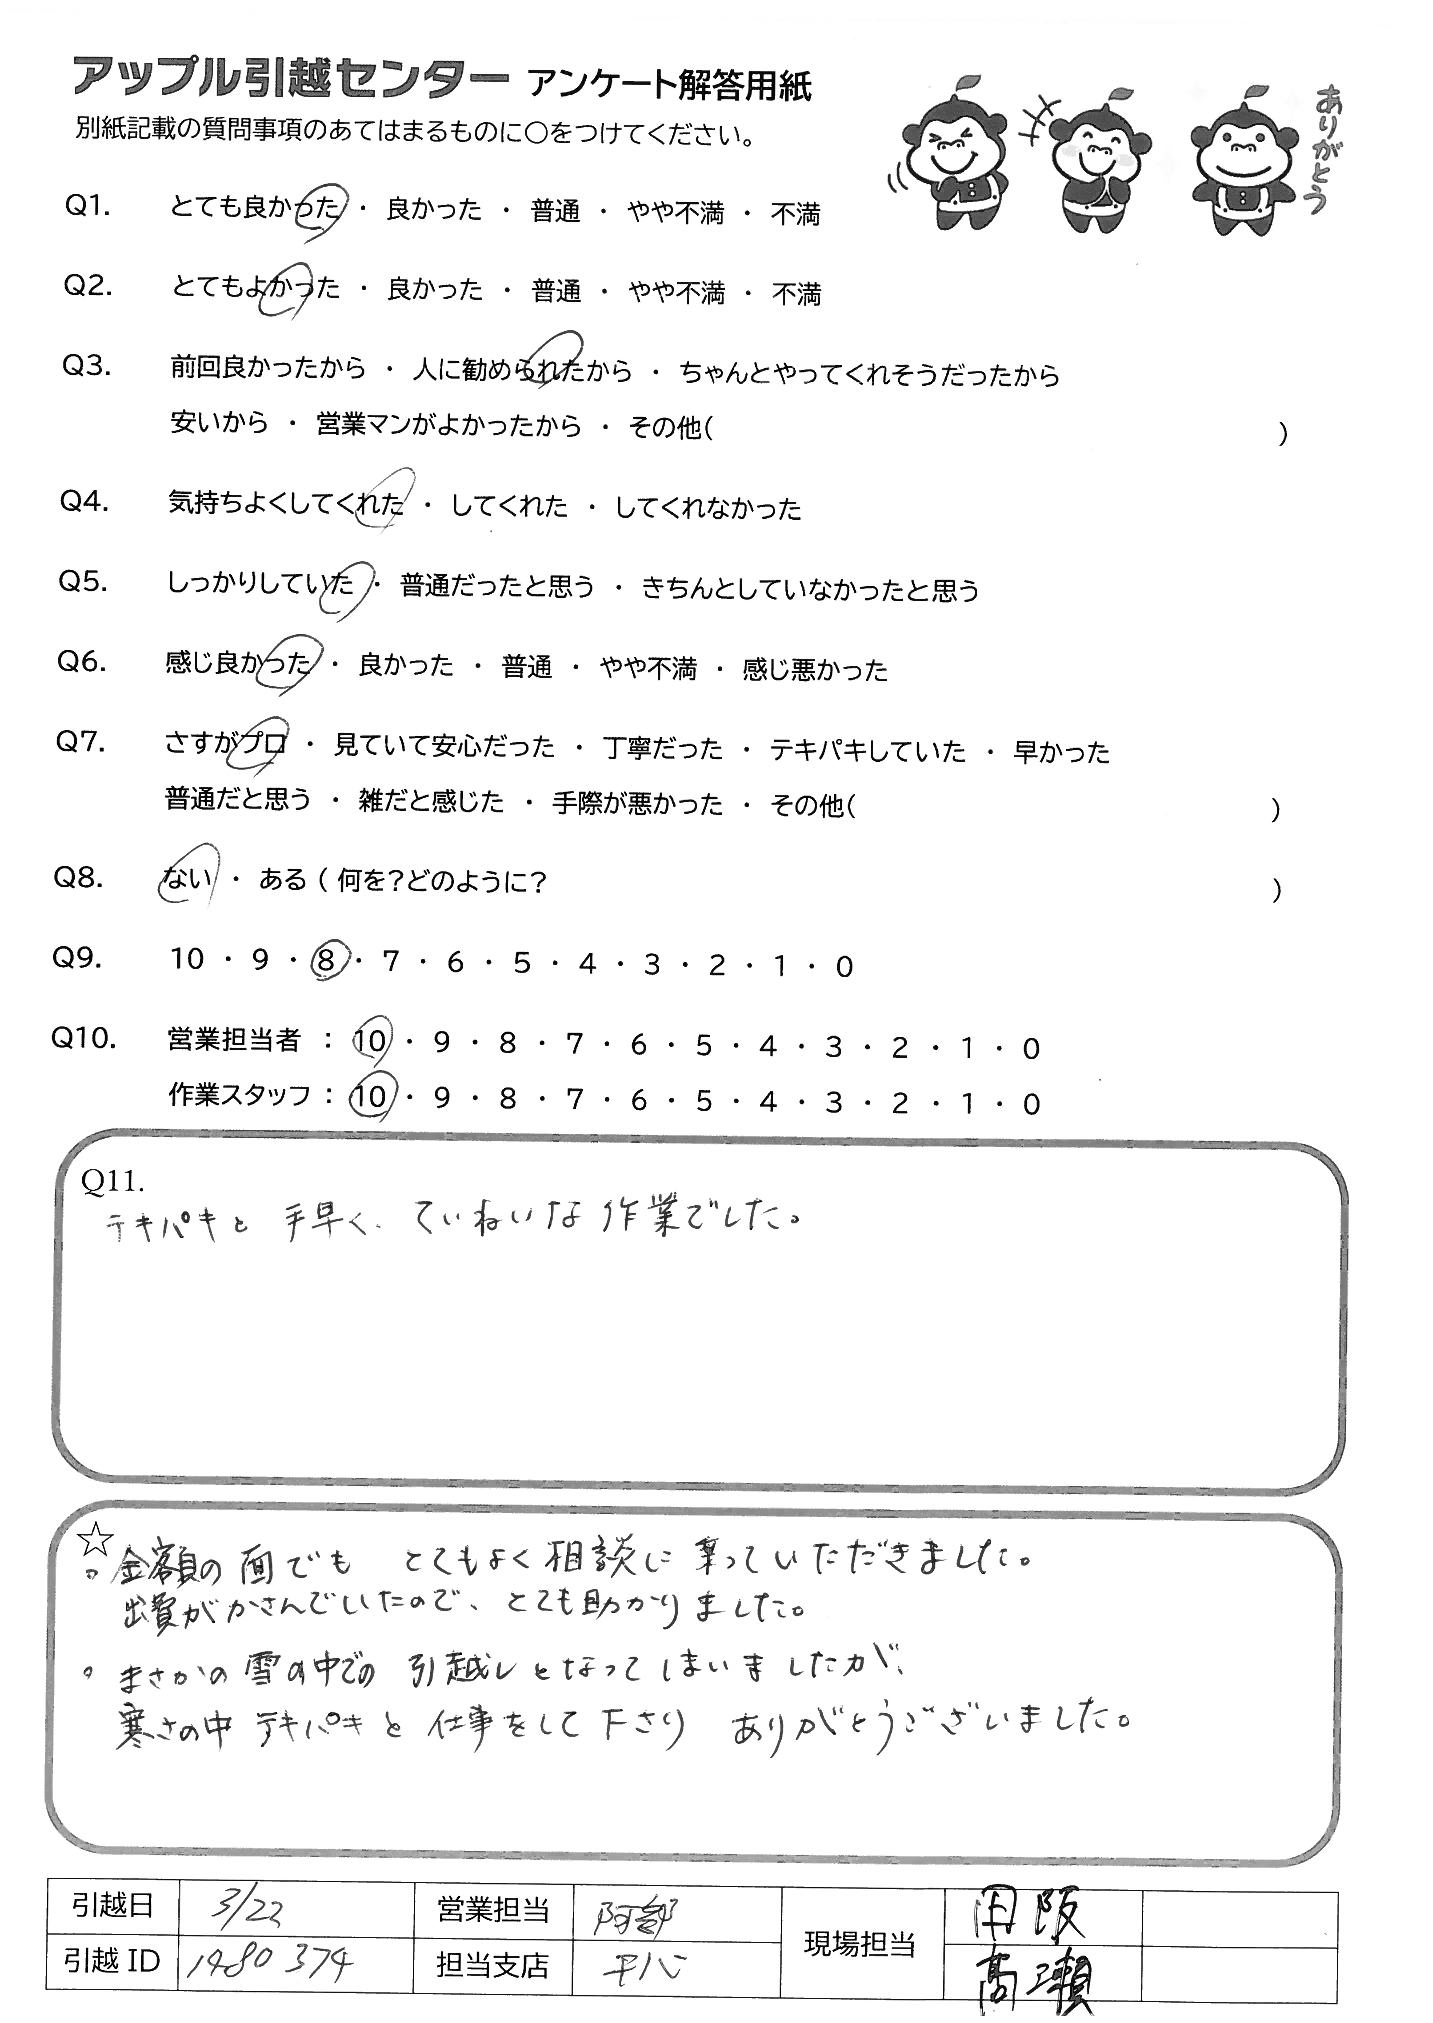 アップル引越センター アンケート解答用紙
別紙記載の質問事項のあてはまるものに〇をつけてください。
ありがとう
Q1. とても良かった ・ 良かった ・ 普通 ・ やや不満 ・ 不満
Q2. とてもよかった ・ 良かった ・ 普通 ・ やや不満 ・ 不満
Q3. 前回良かったから ・ 人に勧められたから ・ ちゃんとやってくれそうだったから
安いから ・ 営業マンがよかったから ・ その他( )
Q4. 気持ちよくしてくれた ・ してくれた ・ してくれなかった
Q5. しっかりしていた ・ 普通だったと思う ・ きちんとしていなかったと思う
Q6. 感じ良かった ・ 良かった ・ 普通 ・ やや不満 ・ 感じ悪かった
Q7. さすがプロ ・ 見ていて安心だった ・ 丁寧だった ・ テキパキしていた ・ 早かった
普通だと思う ・ 雑だと感じた ・ 手際が悪かった ・ その他( )
Q8. ない ・ ある ( 何を?どのように? )
Q9. 10 ・ 9 ・ 8 ・ 7 ・ 6 ・ 5 ・ 4 ・ 3 ・ 2 ・ 1 ・ 0
Q10. 営業担当者 : 10 ・ 9 ・ 8 ・ 7 ・ 6 ・ 5 ・ 4 ・ 3 ・ 2 ・ 1 ・ 0
作業スタッフ : 10 ・ 9 ・ 8 ・ 7 ・ 6 ・ 5 ・ 4 ・ 3 ・ 2 ・ 1 ・ 0
Q11.
テキパキと 手早く、ていねいな作業でした。
☆
。金額の面でも とてもよく相談に乗っていただきました。
出費がかさんでいたので、とても助かりました。
。まさかの雪の中での引越しとなってしまいましたが、
寒さの中テキパキと仕事をして下さり ありがとうございました。
引越日 3/22 営業担当 阿部 現場担当 田阪
引越ID 1480374 担当支店 高瀬